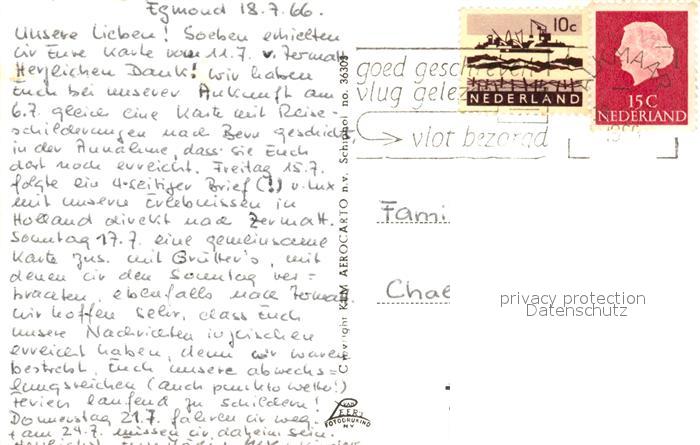 Egmond 18.7.66.
Unsere Lieben! Soeben erhielten
wir Eure Karte vom 11.7. v. Zermatt
Herzlichen Dank! Wir haben
Euch bei unserer Ankunft am
6.7. gleich eine Karte mit Reise-
schilderungen nach Bern geschickt,
in der Annahme, dass sie Euch
dort noch erreicht. Freitag 15.7.
folgte ein 4-seitiger Brief (!) v. uns
mit unseren Erlebnissen in
Holland direkt nach Zermatt.
Sonntag 17.7. eine gemeinsame
Karte zus. mit Grütter's, mit
denen wir den Sonntag ver=
brachten, ebenfalls nach Zermatt.
Wir hoffen sehr, dass Euch
unsere Nachrichten inzwischen
erreicht haben, denn wir waren
bestrebt, Euch unsere abwechs=
lungsreichen (auch punkto Wetter!)
Ferien laufend zu schildern!
Donnerstag 21.7. fahren wir weg.
am 24.7. müssen wir daheim sein.
Copyright KLM AEROCARTO n.v. Schiphol no. 36308
VAN LEER'S
FOTODRUKIND
NV
10c
NEDERLAND
15 C
NEDERLAND
goed geschreven
vlug gelez
vlot bezorgd
ALKMAAR
Fami
Chae
privacy protection
Datenschutz